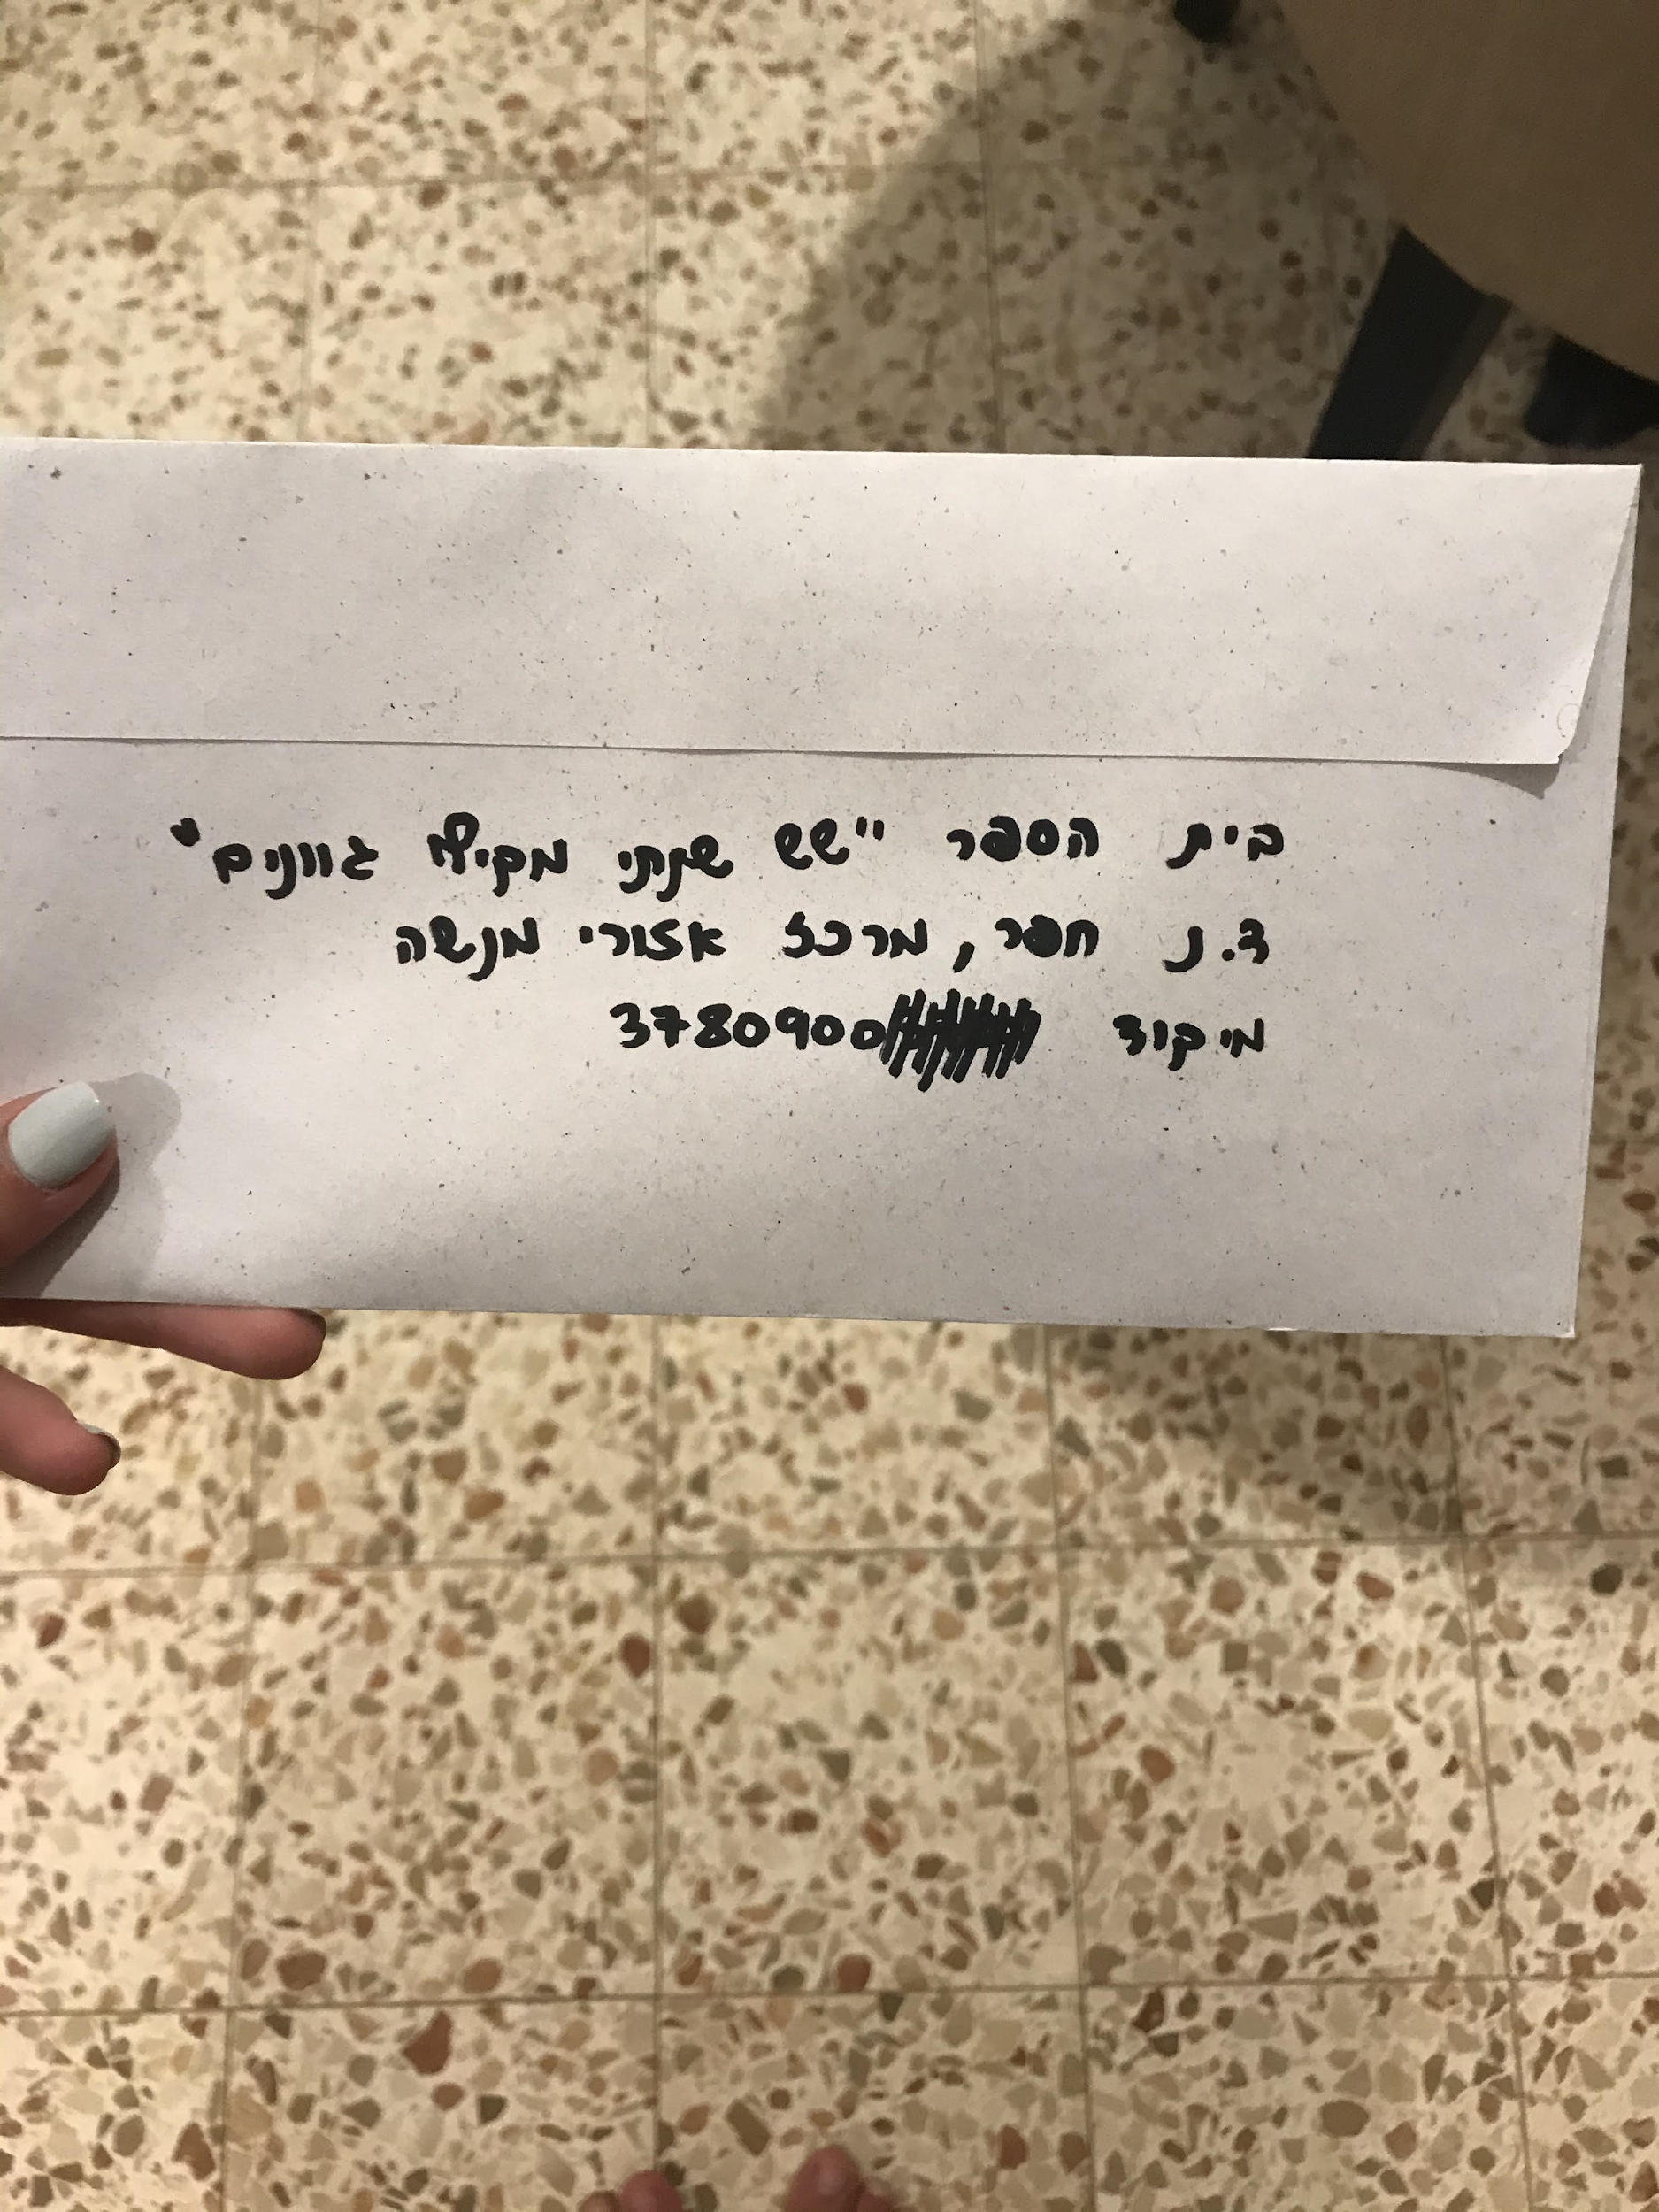 בית הספר "שש שנתי מקיף גוונים"
ד.נ חפר, מרכז אזורי מנשה
מיקוד 3780900